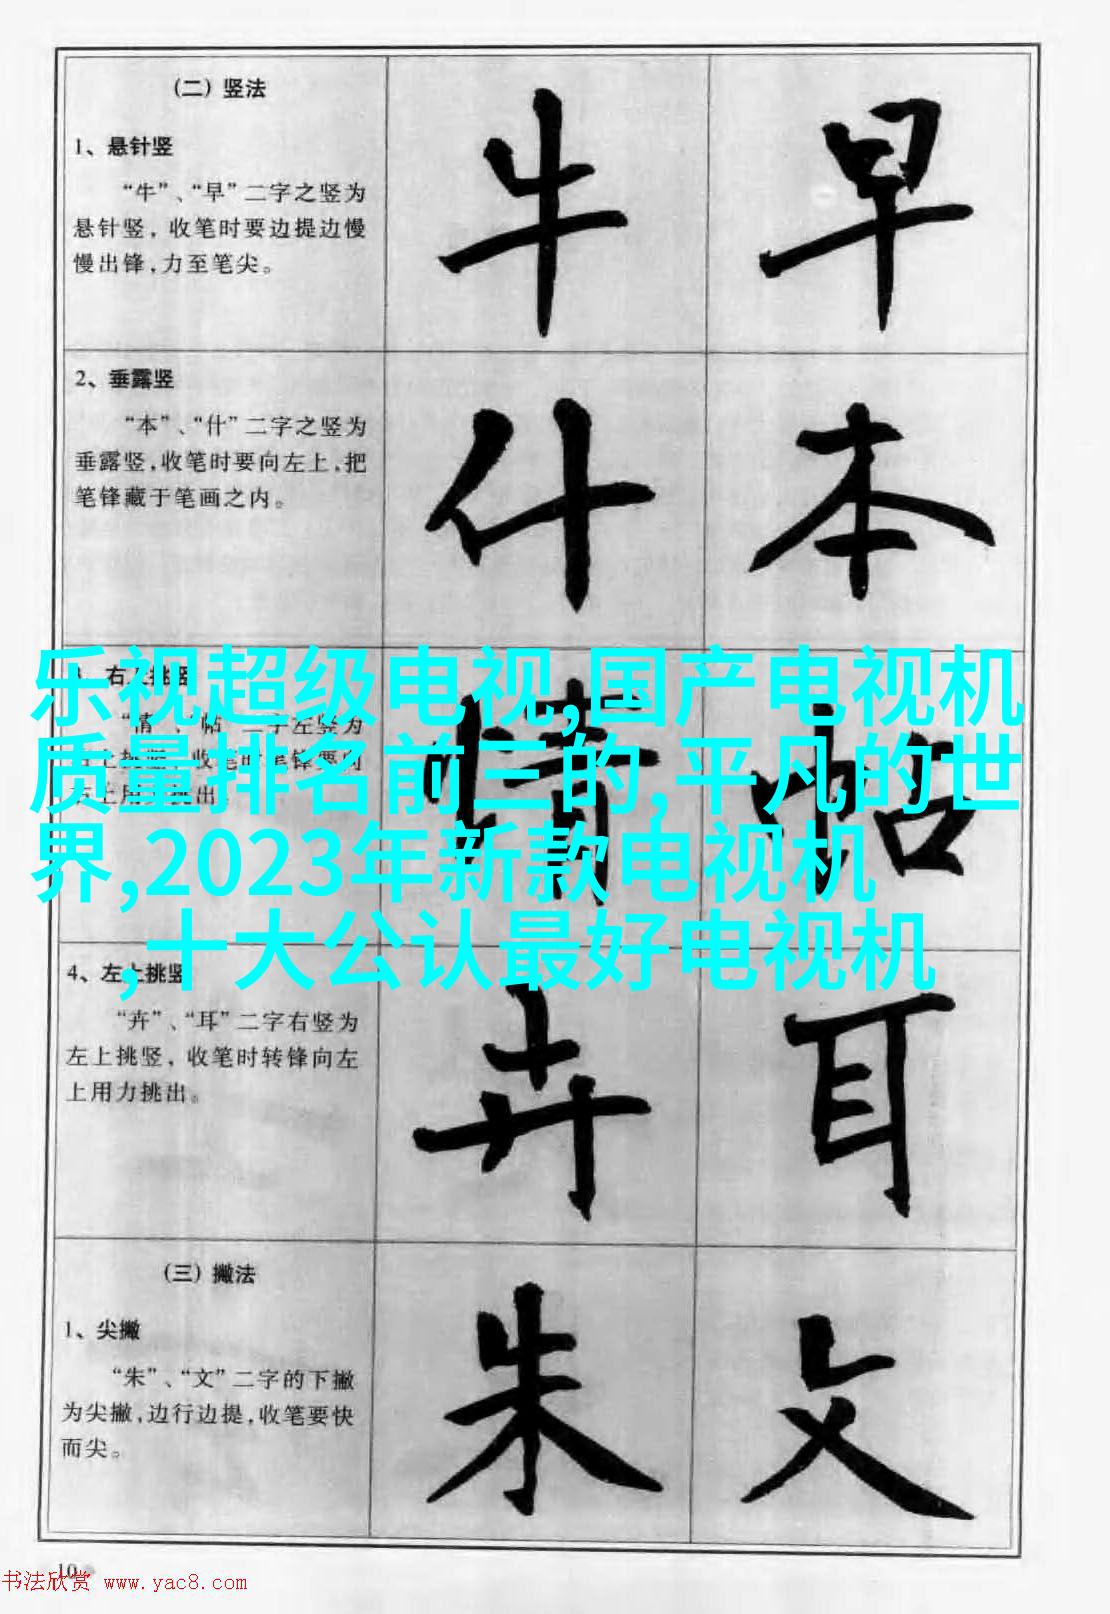 （二）竖法
1、悬针竖
“牛”、“早”二字之竖为
悬针竖，收笔时要边提边慢
慢出锋，力至笔尖。
牛 早
2、垂露竖
“本”、“什”二字之竖为
垂露竖，收笔时要向左上，把
笔锋藏于笔画之内。
什 本
情 帖
乐视超级电视,国产电视机
质量排名前三的,平凡的世
界,2023年新款电视机
,十大公认最好电视机
4、左上挑竖
“卉”、“耳”二字右竖为
左上挑竖，收笔时转锋向左
上用力挑出。
卉 耳
（三）撇法
1、尖撇
“朱”、“文”二字的下撇
为尖撇，边行边提，收笔要快
而尖。
朱 文
10
书法欣赏 www.yac8.com